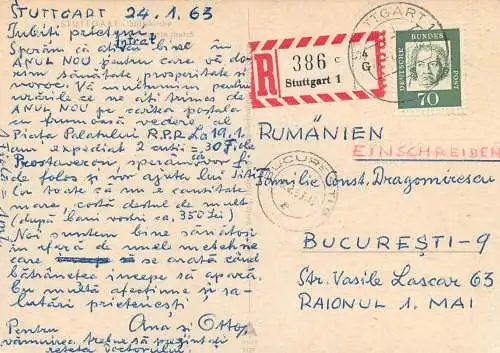 STUTTGART 24.1.63
Iubiți prieteni
Sperăm că ați intrat bine în
ANUL NOU pentru care vă do-
rim sănătate, prosperitate și
noroc. Vă mulțumim pentru
urările ce ne ați trimes de
ANUL NOU pe cartea poștală
cu frumoasă vedere al
Piața Palatului R.P.R. La 19.1.
am expediat 2 cutii = 30 Fiole
sperăm vor fi
de folos și vor ajuta lui Titi
Cu toate că nu e cantitate
mare, costă destul de mult
(după bani voștri ca. 350 Lei)
Noi suntem bine sănătoși
în afară de unele meteahne
care, se arată când
bătrânețea începe să apară.
Cu multă afecțiune și sa-
lutări prietenești
Ana și Otto
Pentru
vămuirea trebue să prezintați
rețeta doctorului.
R
386 c
Stuttgart 1
STUTTGART
G
DEUTSCHE BUNDESPOST
70
BUCUREȘTI
RUMÄNIEN
EINSCHREIBEN
Familie Const. Dragomirescu
BUCUREȘTI-9
Str. Vasile Lascar 63
RAIONUL 1. MAI